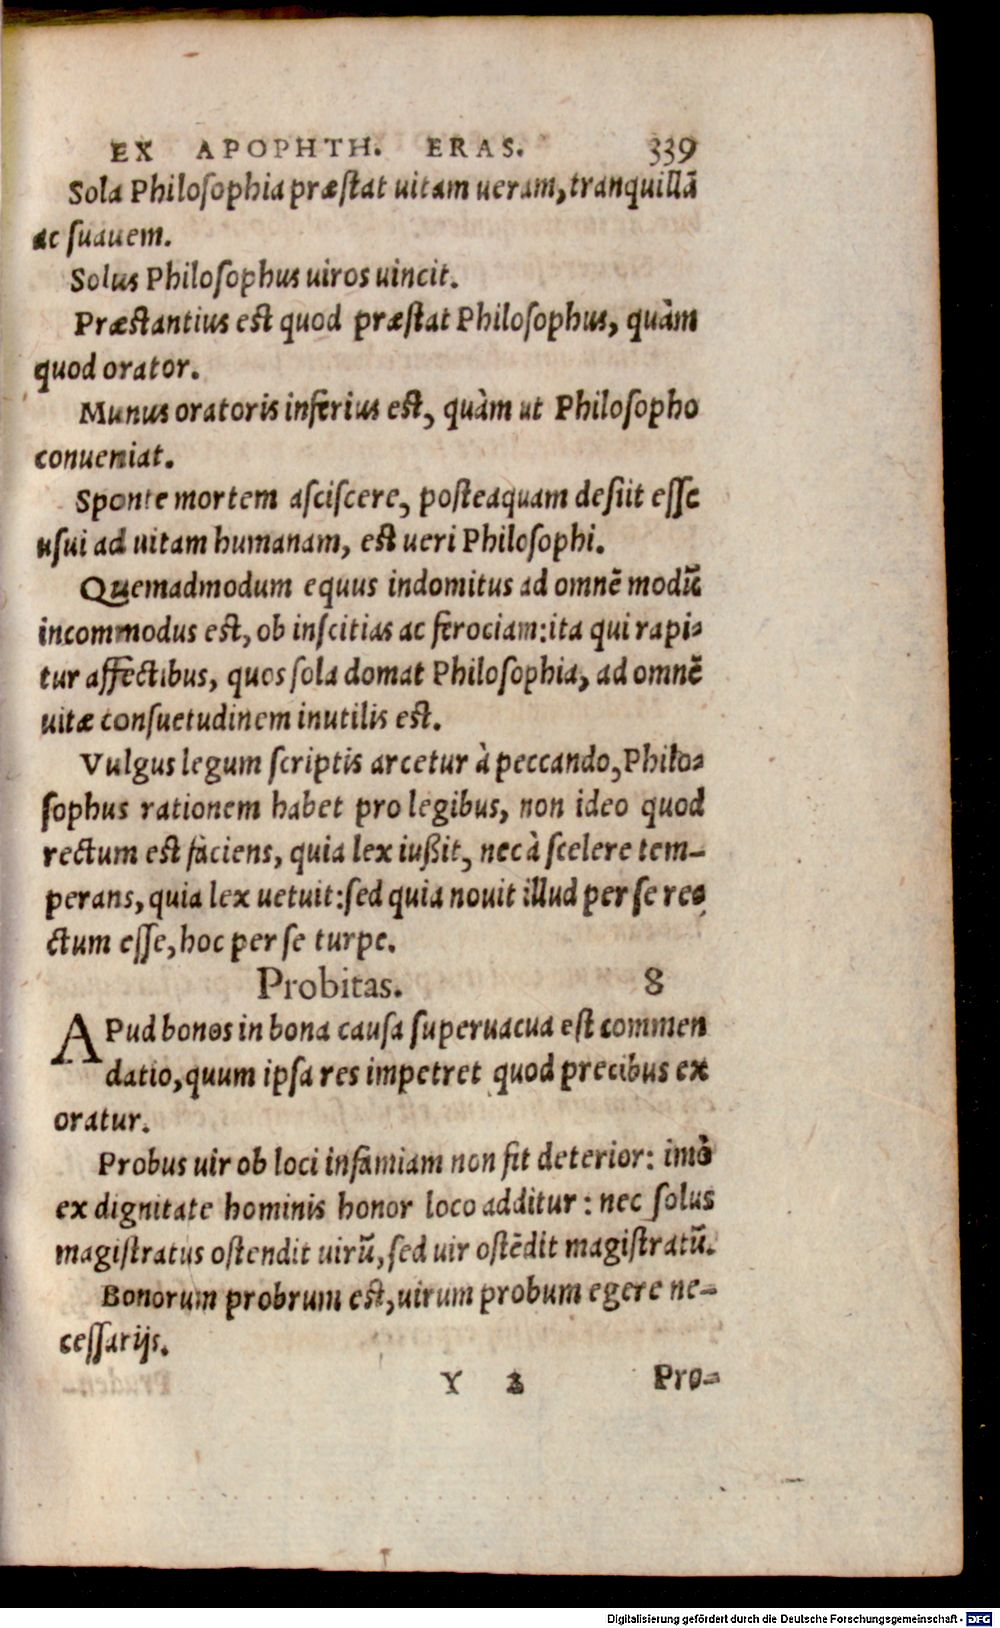 EX APOPHTH. ERAS. 339
Sola Philosophia præstat uitam ueram, tranquillã
ac suauem.
Solus Philosophus uiros uincit.
Præstantius est quod præstat Philosophus, quàm
quod orator.
Munus oratoris inferius est, quàm ut Philosopho
conueniat.
Sponte mortem asciscere, posteaquam desiit esse
usui ad uitam humanam, est ueri Philosophi.
Quemadmodum equus indomitus ad omnẽ modũ
incommodus est, ob inscitias ac ferociam: ita qui rapi-
tur affectibus, quos sola domat Philosophia, ad omnẽ
uitæ consuetudinem inutilis est.
Vulgus legum scriptis arcetur à peccando, Philo-
sophus rationem habet pro legibus, non ideo quod
rectum est faciens, quia lex iußit, nec à scelere tem-
perans, quia lex uetuit: sed quia nouit illud per se re-
ctum esse, hoc per se turpe.
Probitas. 8
APud bonos in bona causa superuacua est commen
datio, quum ipsa res impetret quod precibus ex
oratur.
Probus uir ob loci infamiam non fit deterior: imò
ex dignitate hominis honor loco additur: nec solus
magistratus ostendit uirũ, sed uir ostẽdit magistratũ.
Bonorum probrum est, uirum probum egere ne-
cessarijs.
Y 2 Pro-
Digitalisierung gefördert durch die Deutsche Forschungsgemeinschaft - DFG